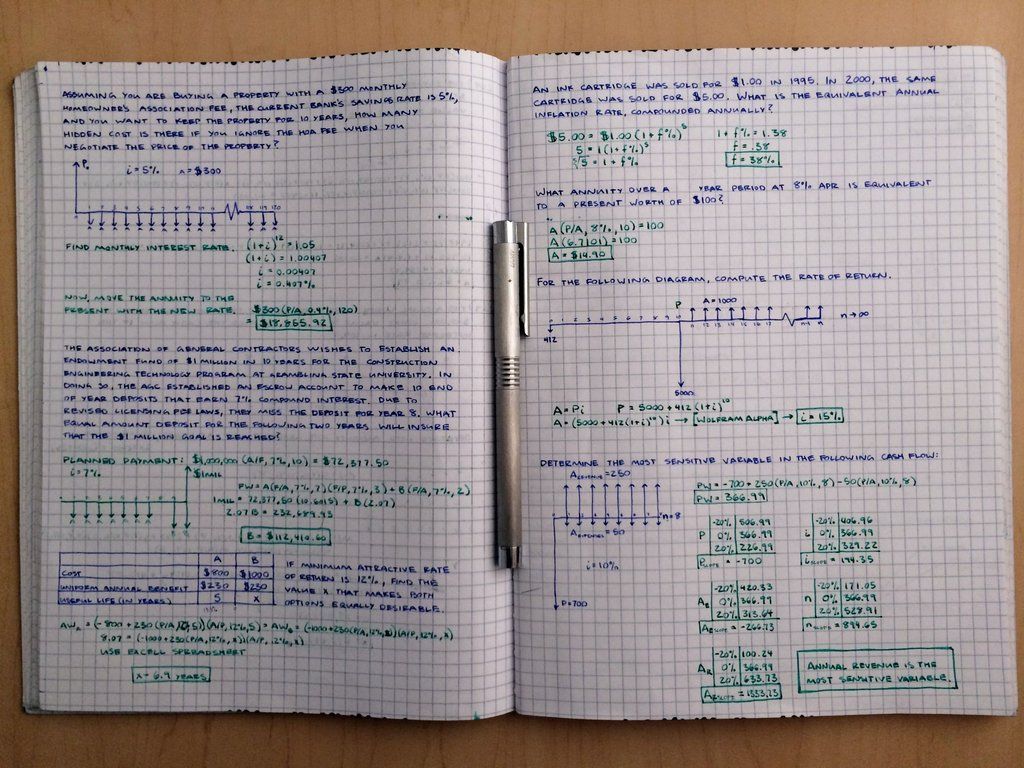 ASSUMING YOU ARE BUYING A PROPERTY WITH A $300 MONTHLY
HOMEOWNER'S ASSOCIATION FEE, THE CURRENT BANK'S SAVINGS RATE IS 5%,
AND YOU WANT TO KEEP THE PROPERTY FOR 10 YEARS, HOW MANY
HIDDEN COST IS THERE IF YOU IGNORE THE HOA FEE WHEN YOU
NEGOTIATE THE PRICE OF THE PROPERTY?
i = 5% A = $300
FIND MONTHLY INTEREST RATE. (1+i)^12 = 1.05
(1+i) = 1.00407
i = 0.00407
i = 0.407%
NOW, MOVE THE ANNUITY TO THE
PRESENT WITH THE NEW RATE. $300(P/A, 0.4%, 120)
= $18,865.92
THE ASSOCIATION OF GENERAL CONTRACTORS WISHES TO ESTABLISH AN
ENDOWMENT FUND OF $1 MILLION IN 10 YEARS FOR THE CONSTRUCTION
ENGINEERING TECHNOLOGY PROGRAM AT GRAMBLING STATE UNIVERSITY. IN
DOING SO, THE AGC ESTABLISHED AN ESCROW ACCOUNT TO MAKE 10 END
OF YEAR DEPOSITS THAT EARN 7% COMPOUND INTEREST. DUE TO
REVISED LICENSING FEE LAWS, THEY MISS THE DEPOSIT FOR YEAR 8. WHAT
EQUAL AMOUNT DEPOSIT FOR THE FOLLOWING TWO YEARS WILL INSURE
THAT THE $1 MILLION GOAL IS REACHED?
PLANNED PAYMENT: $1,000,000 (A/F, 7%, 10) = $72,377.50
i = 7% $1MIL
FW = A(F/A, 7%, 7)(F/P, 7%, 3) + B(F/A, 7%, 2)
1MIL = 72,377.50 (10.6015) + B(2.07)
2.07B = 232,689.93
B = $112,410.60
A B
COST $800 $1000
UNIFORM ANNUAL BENEFIT $230 $230
USEFUL LIFE (IN YEARS) 5 X
IF MINIMUM ATTRACTIVE RATE
OF RETURN IS 12%, FIND THE
VALUE X THAT MAKES BOTH
OPTIONS EQUALLY DESIREABLE.
AW_A = (-800 + 230(P/A, 12%, 5))(A/P, 12%, 5) = AW_B = (-1000+230(P/A, 12%, X))(A/P, 12%, X)
8.07 = (-1000+230(P/A, 12%, X))(A/P, 12%, X)
USE EXCELL SPREADSHEET
X = 6.9 YEARS
AN INK CARTRIDGE WAS SOLD FOR $1.00 IN 1995. IN 2000, THE SAME
CARTRIDGE WAS SOLD FOR $5.00. WHAT IS THE EQUIVALENT ANNUAL
INFLATION RATE, COMPOUNDED ANNUALLY?
$5.00 = $1.00(1+f%)^5 1+f% = 1.38
5 = 1(1+f%)^5 f = .38
⁵√5 = 1+f% f = 38%
WHAT ANNUITY OVER A YEAR PERIOD AT 8% APR IS EQUIVALENT
TO A PRESENT WORTH OF $100?
A(P/A, 8%, 10) = 100
A(6.7101) = 100
A = $14.90
FOR THE FOLLOWING DIAGRAM, COMPUTE THE RATE OF RETURN.
P A = 1000
0 1 2 3 4 5 6 7 8 9 10 11 12 13 14 15 16 17 n→∞
412
5000
A = Pi P = 5000 + 412(1+i)^10
A = (5000+412(1+i)^10)i → [WOLFRAM ALPHA] → i = 15%
DETERMINE THE MOST SENSITIVE VARIABLE IN THE FOLLOWING CASH FLOW:
A REVENUE = 250
PW = -700 + 250(P/A, 10%, 8) - 50(P/A, 10%, 8)
PW = 366.99
n = 8
A EXPENSES = 50
i = 10%
P = 700
P -20% 506.99
0% 366.99
20% 226.99
P SLOPE = -700
i -20% 406.96
0% 366.99
20% 329.22
i SLOPE = -194.35
A_E -20% 420.33
0% 366.99
20% 313.64
A_E SLOPE = -266.73
n -20% 171.05
0% 366.99
20% 528.91
n SLOPE = 894.65
A_R -20% 100.24
0% 366.99
20% 633.73
A_R SLOPE = 1333.73
ANNUAL REVENUE IS THE
MOST SENSITIVE VARIABLE.